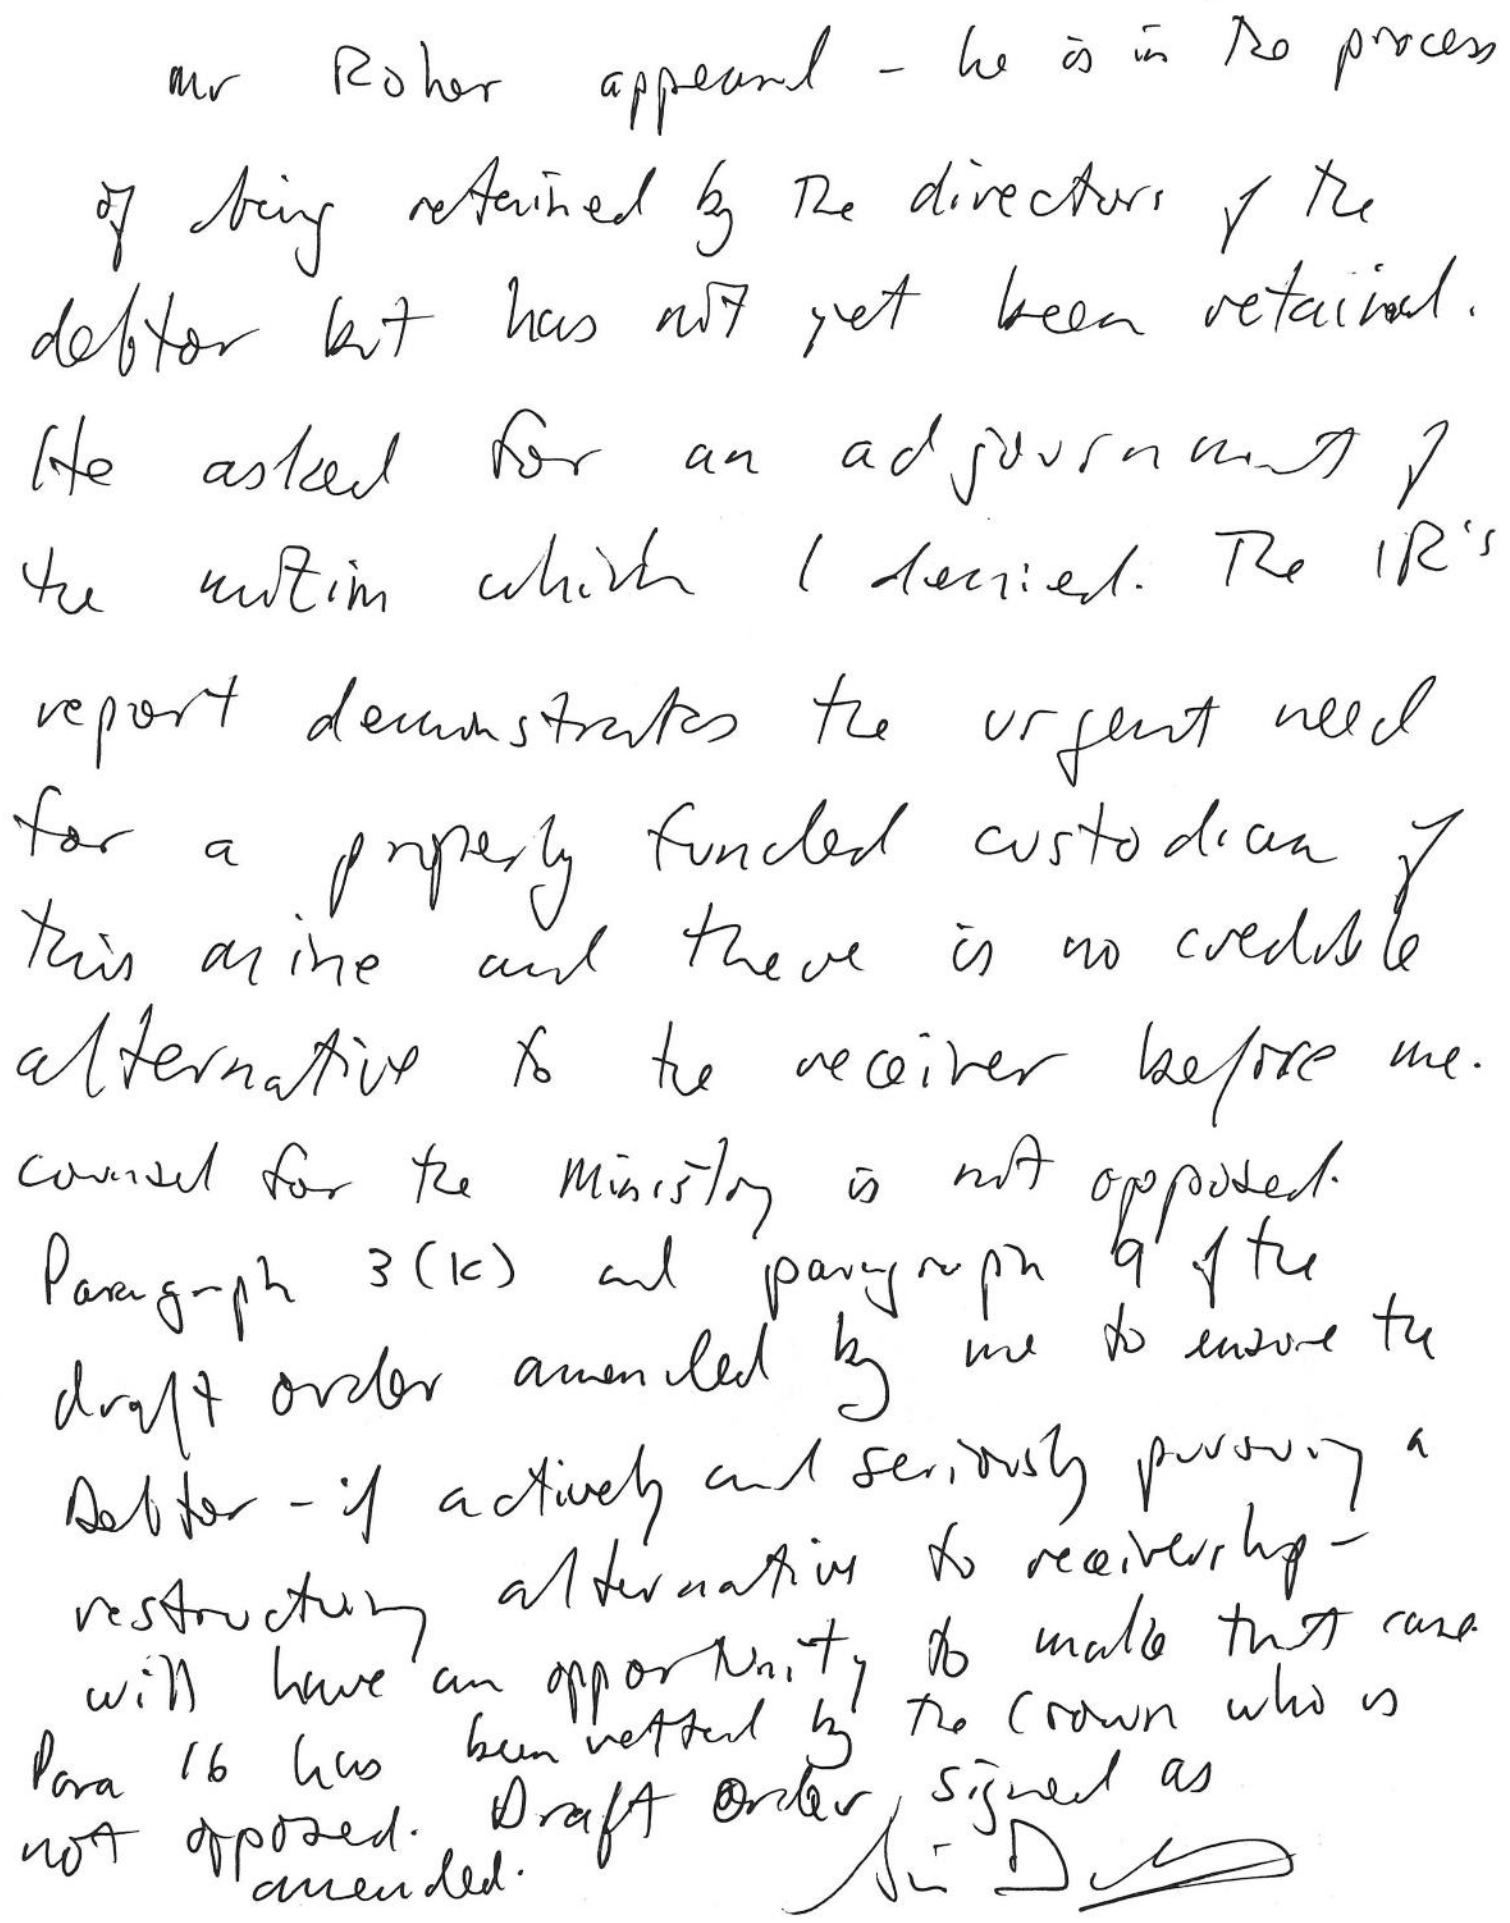 Mr Roher appeared - he is in the process
of being retained by the directors of the
debtor but has not yet been retained.
He asked for an adjournment of
the motion which I denied. The IR's
report demonstrates the urgent need
for a properly funded custodian of
this mine and there is no credible
alternative to the receiver before me.
Counsel for the Ministry is not opposed.
Paragraph 3(k) and paragraph 9 of the
draft order amended by me to ensure the
Debtor - if actively and seriously pursuing a
restructuring alternative to receivership -
will have an opportunity to make that case.
Para 16 has been vetted by the Crown who is
not opposed. Draft Order signed as
amended.